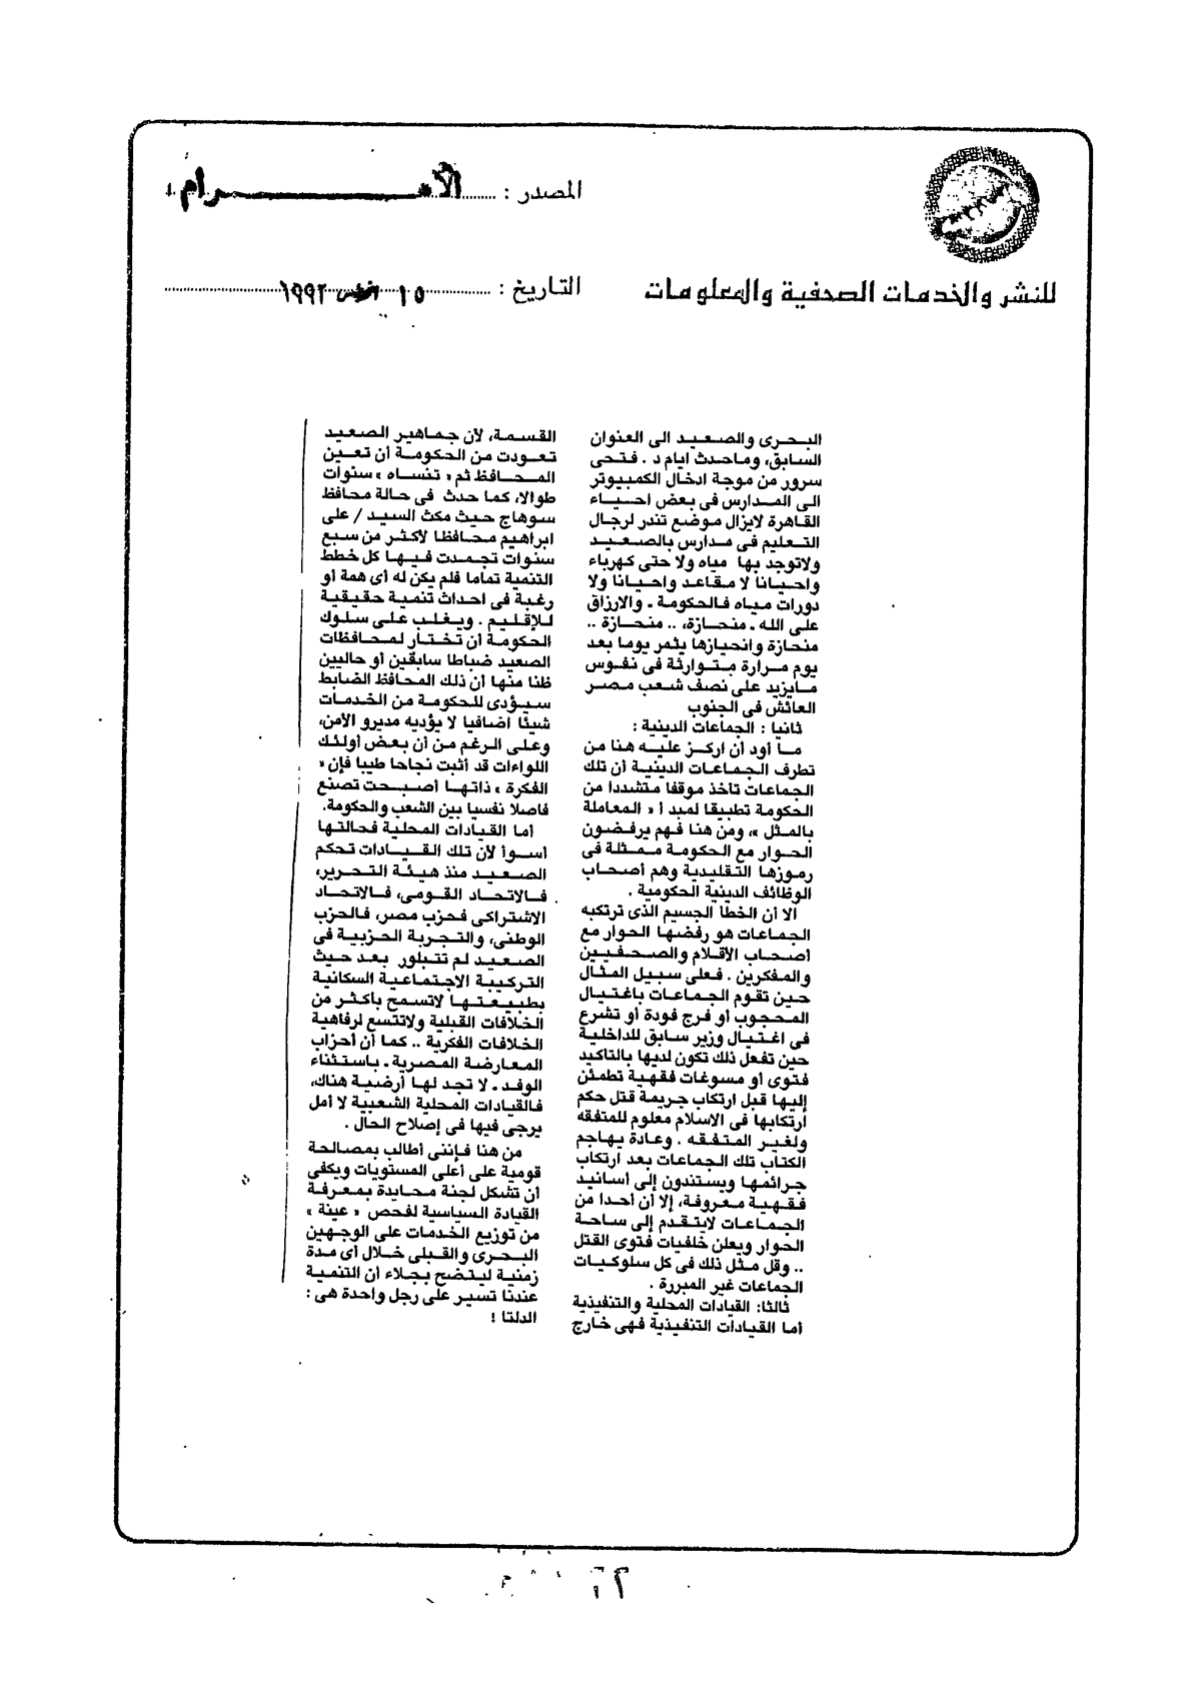 المصدر : الأهرام
للنشر والخدمات الصحفية والمعلومات
التاريخ : ١٥ اغسطس ١٩٩٢
البحرى والصعيد الى العنوان
السابق، وماحدث ايام د . فتحى
سرور من موجة ادخال الكمبيوتر
الى المدارس فى بعض احياء
القاهرة لايزال موضع تندر لرجال
التعليم فى مدارس بالصعيد
ولاتوجد بها مياه ولا حتى كهرباء
واحيانا لا مقاعد واحيانا ولا
دورات مياه فالحكومة ـ والارزاق
على الله ـ منحازة، .. منحازة ..
منحازة وانحيازها يثمر يوما بعد
يوم مرارة متوارثة فى نفوس
مايزيد على نصف شعب مصر
العائش فى الجنوب
ثانيا : الجماعات الدينية :
ما أود أن اركز عليه هنا من
تطرف الجماعات الدينية أن تلك
الجماعات تاخذ موقفا متشددا من
الحكومة تطبيقا لمبد أ « المعاملة
بالمثل »، ومن هنا فهم يرفضون
الحوار مع الحكومة ممثلة فى
رموزها التقليدية وهم أصحاب
الوظائف الدينية الحكومية .
الا أن الخطا الجسيم الذى ترتكبه
الجماعات هو رفضها الحوار مع
أصحاب الأقلام والصحفيين
والمفكرين . فعلى سبيل المثال
حين تقوم الجماعات باغتيال
المحجوب أو فرج فودة أو تشرع
فى اغتيال وزير سابق للداخلية
حين تفعل ذلك تكون لديها بالتاكيد
فتوى أو مسوغات فقهية تطمئن
إليها قبل ارتكاب جريمة قتل حكم
ارتكابها فى الاسلام معلوم للمتفقه
ولغير المتفقه . وعادة يهاجم
الكتاب تلك الجماعات بعد ارتكاب
جرائمها ويستندون إلى أسانيد
فقهية معروفة، إلا أن أحدا من
الجماعات لايتقدم إلى ساحة
الحوار ويعلن خلفيات فتوى القتل
.. وقل مثل ذلك فى كل سلوكيات
الجماعات غير المبررة .
ثالثا: القيادات المحلية والتنفيذية
أما القيادات التنفيذية فهى خارج
القسمة، لأن جماهير الصعيد
تعودت من الحكومة أن تعين
المحافظ ثم « تنساه » سنوات
طوالا، كما حدث فى حالة محافظ
سوهاج حيث مكث السيد / على
ابراهيم محافظا لأكثر من سبع
سنوات تجمدت فيها كل خطط
التنمية تماما فلم يكن له أى همة أو
رغبة فى احداث تنمية حقيقية
للإقليم . ويغلب على سلوك
الحكومة أن تختار لمحافظات
الصعيد ضباطا سابقين أو حاليين
ظنا منها أن ذلك المحافظ الضابط
سيؤدى للحكومة من الخدمات
شيئا اضافيا لا يؤديه مديرو الأمن،
وعلى الرغم من أن بعض أولئك
اللواءات قد أثبت نجاحا طيبا فإن «
الفكرة » ذاتها أصبحت تصنع
فاصلا نفسيا بين الشعب والحكومة.
أما القيادات المحلية فحالتها
أسوأ لأن تلك القيادات تحكم
الصعيد منذ هيئة التحرير،
فالاتحاد القومى، فالاتحاد
الاشتراكى فحزب مصر، فالحزب
الوطنى، والتجربة الحزبية فى
الصعيد لم تتبلور بعد حيث
التركيبة الاجتماعية السكانية
بطبيعتها لاتسمح باكثر من
الخلافات القبلية ولاتتسع لرفاهية
الخلافات الفكرية .. كما أن أحزاب
المعارضة المصرية ـ باستثناء
الوفد ـ لا تجد لها أرضية هناك،
فالقيادات المحلية الشعبية لا أمل
يرجى فيها فى إصلاح الحال .
من هنا فإننى أطالب بمصالحة
قومية على أعلى المستويات ويكفى
أن تشكل لجنة محايدة بمعرفة
القيادة السياسية لفحص « عينة »
من توزيع الخدمات على الوجهين
البحرى والقبلى خلال أى مدة
زمنية ليتضح بجلاء أن التنمية
عندنا تسير على رجل واحدة هى :
الدلتا !